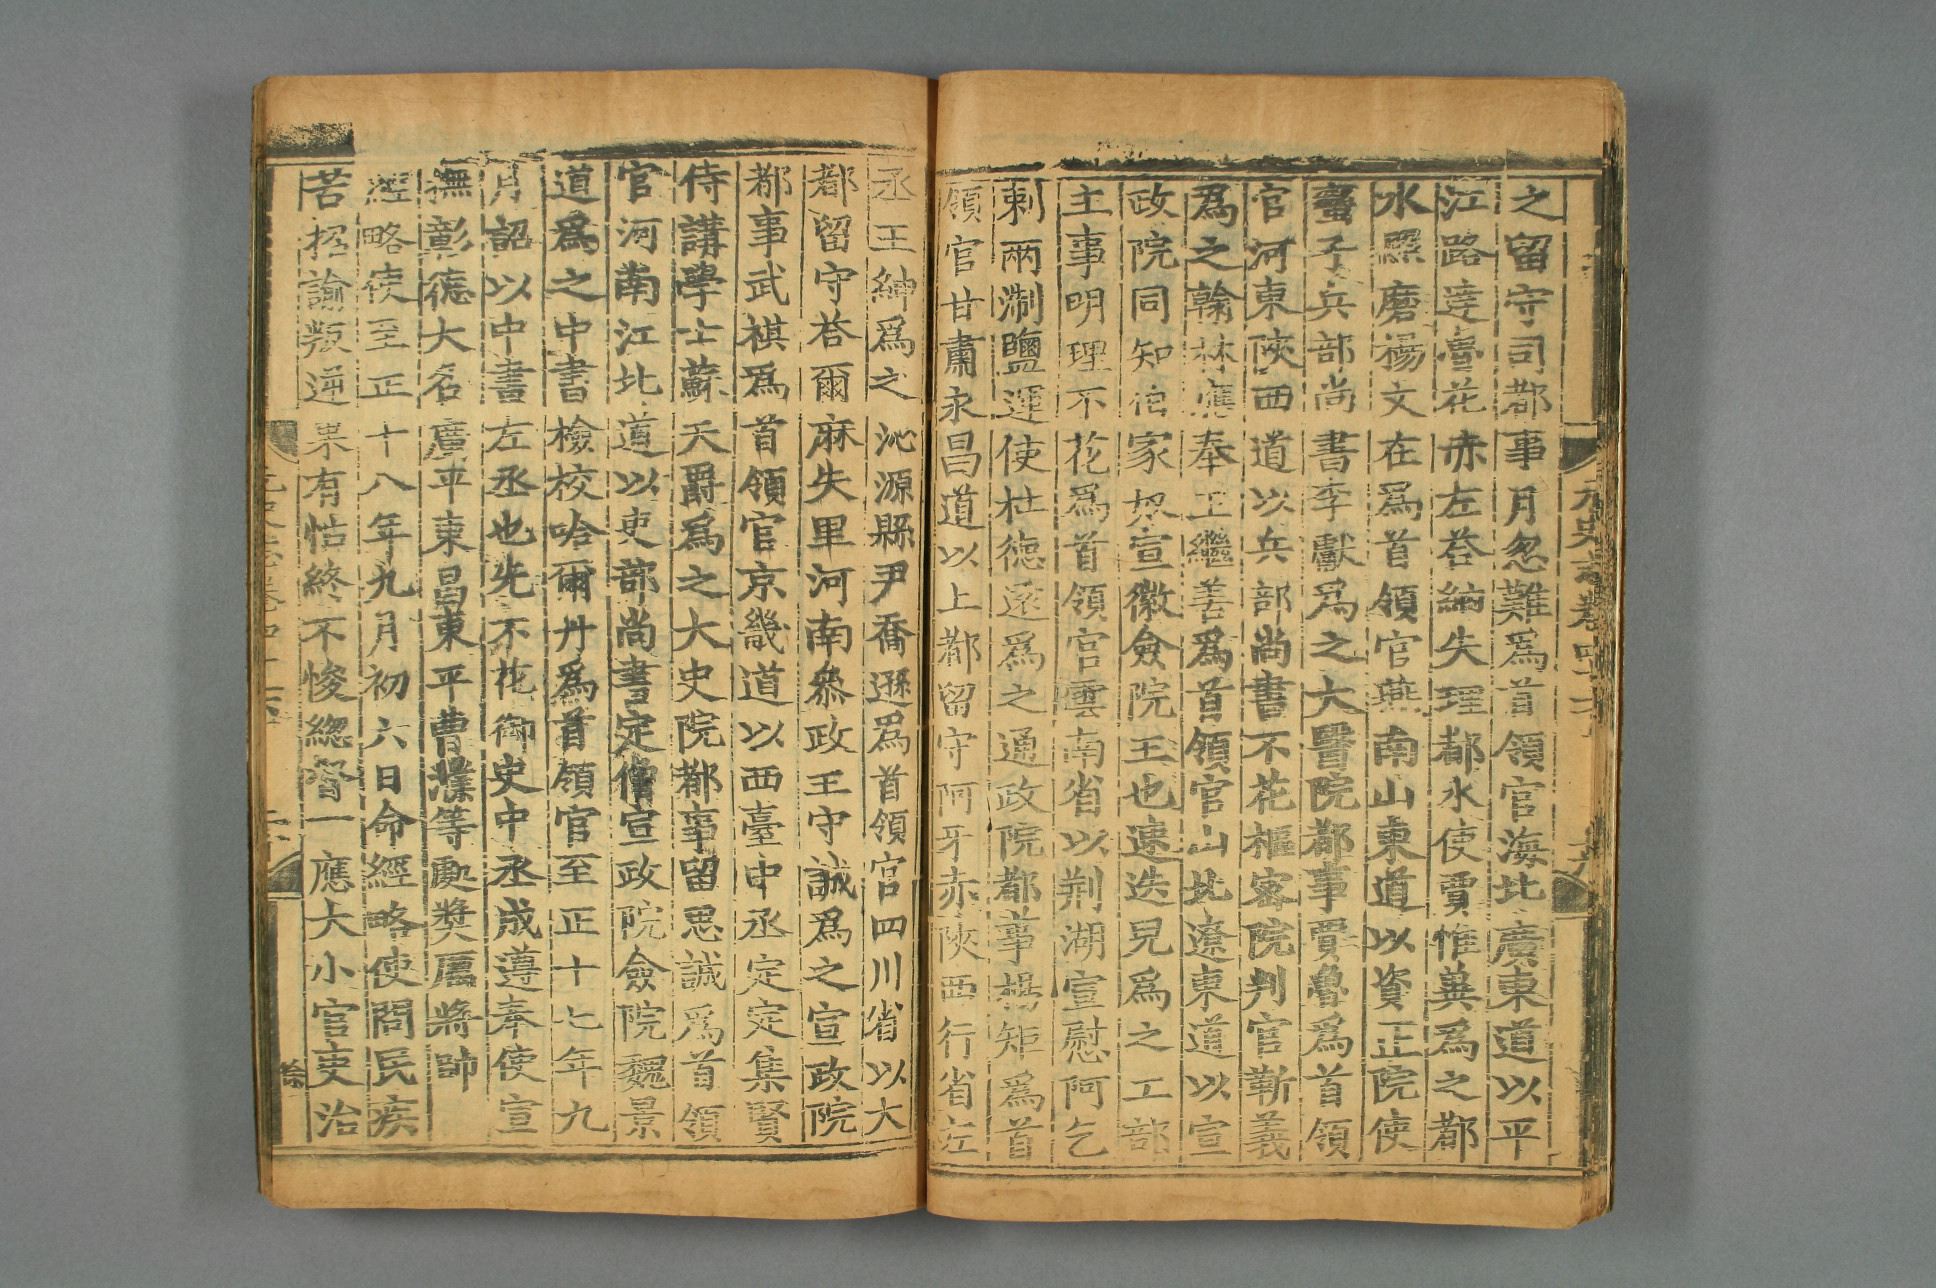 之留守司都事月忽難爲首領官海北廣東道以平
江路達魯花赤左荅納失理都水使賈惟貞爲之都
水照磨楊文在爲首領官燕南山東道以資正院使
蠻子兵部尚書李獻爲之太醫院都事賈魯爲首領
官河東陜西道以兵部尚書不花樞密院判官靳義
爲之翰林應奉王繼善爲首領官山北遼東道以宣
政院同知伯家奴宣徽僉院王也速迭兒爲之工部
主事明理不花爲首領官雲南省以荆湖宣慰阿乞
剌兩浙鹽運使杜德遠爲之通政院都事楊矩爲首
領官甘肅永昌道以上都留守阿牙赤陜西行省左
丞王紳爲之沁源縣尹喬遜爲首領官四川省以大
都留守荅爾麻失里河南叅政王守誠爲之宣政院
都事武祺爲首領官京畿道以西臺中丞定定集賢
侍講學士蘇天爵爲之太史院都事留思誠爲首領
官河南江北道以吏部尚書定僧宣政院僉院魏景
道爲之中書檢校哈爾丹爲首領官至正十七年九
月詔以中書左丞也先不花御史中丞成遵奉使宣
撫彰德大名廣平東昌東平曹濮等處奬厲將帥
經略使至正十八年九月初六日命經略使問民疾
苦招諭叛逆果有怙終不悛總督一應大小官吏治
元史志卷四十六